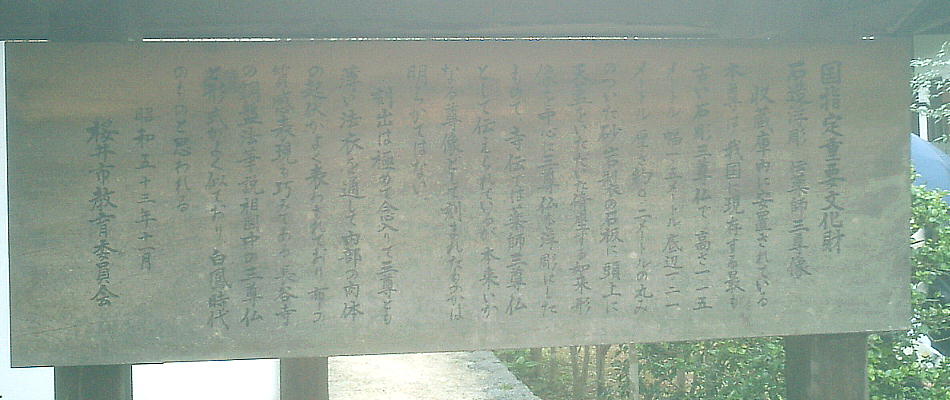 国指定重要文化財
石造浮彫 伝薬師三尊像
収蔵庫内に安置されている
本尊は、我国に現存する最も
古い石彫三尊仏で、高さ一・一五
メートル 幅一・二メートル 底辺一・二一
メートル 厚さ約〇・二メートルの丸み
のついた砂岩製の石板に頭上に
天蓋をいただいた倚坐する如来形
像を中心に三尊仏を浮彫にした
もので 寺伝では薬師三尊仏
として伝えられているが 本来いか
なる尊像として刻まれたものかは
明らかではない
刻出は極めて念入りで三尊とも
薄い法衣を通して内部の肉体
の起伏がよく表わされており 布の
質感表現も巧みである 長谷寺
の銅盤法華説相図中の三尊仏
と形式がよく似ており 白鳳時代
のものと思われる
昭和五十三年十一月
桜井市教育委員会